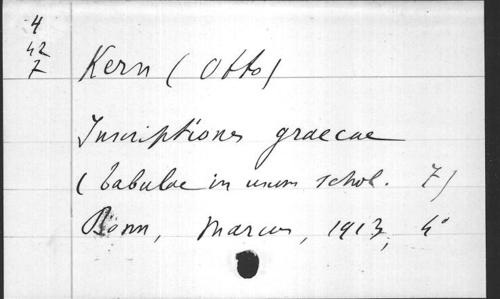 4
42
7
Kern (Otto)
Inscriptiones graecae
(tabulae in usum schol. 7)
Bonn, Marcus, 1913, 4°